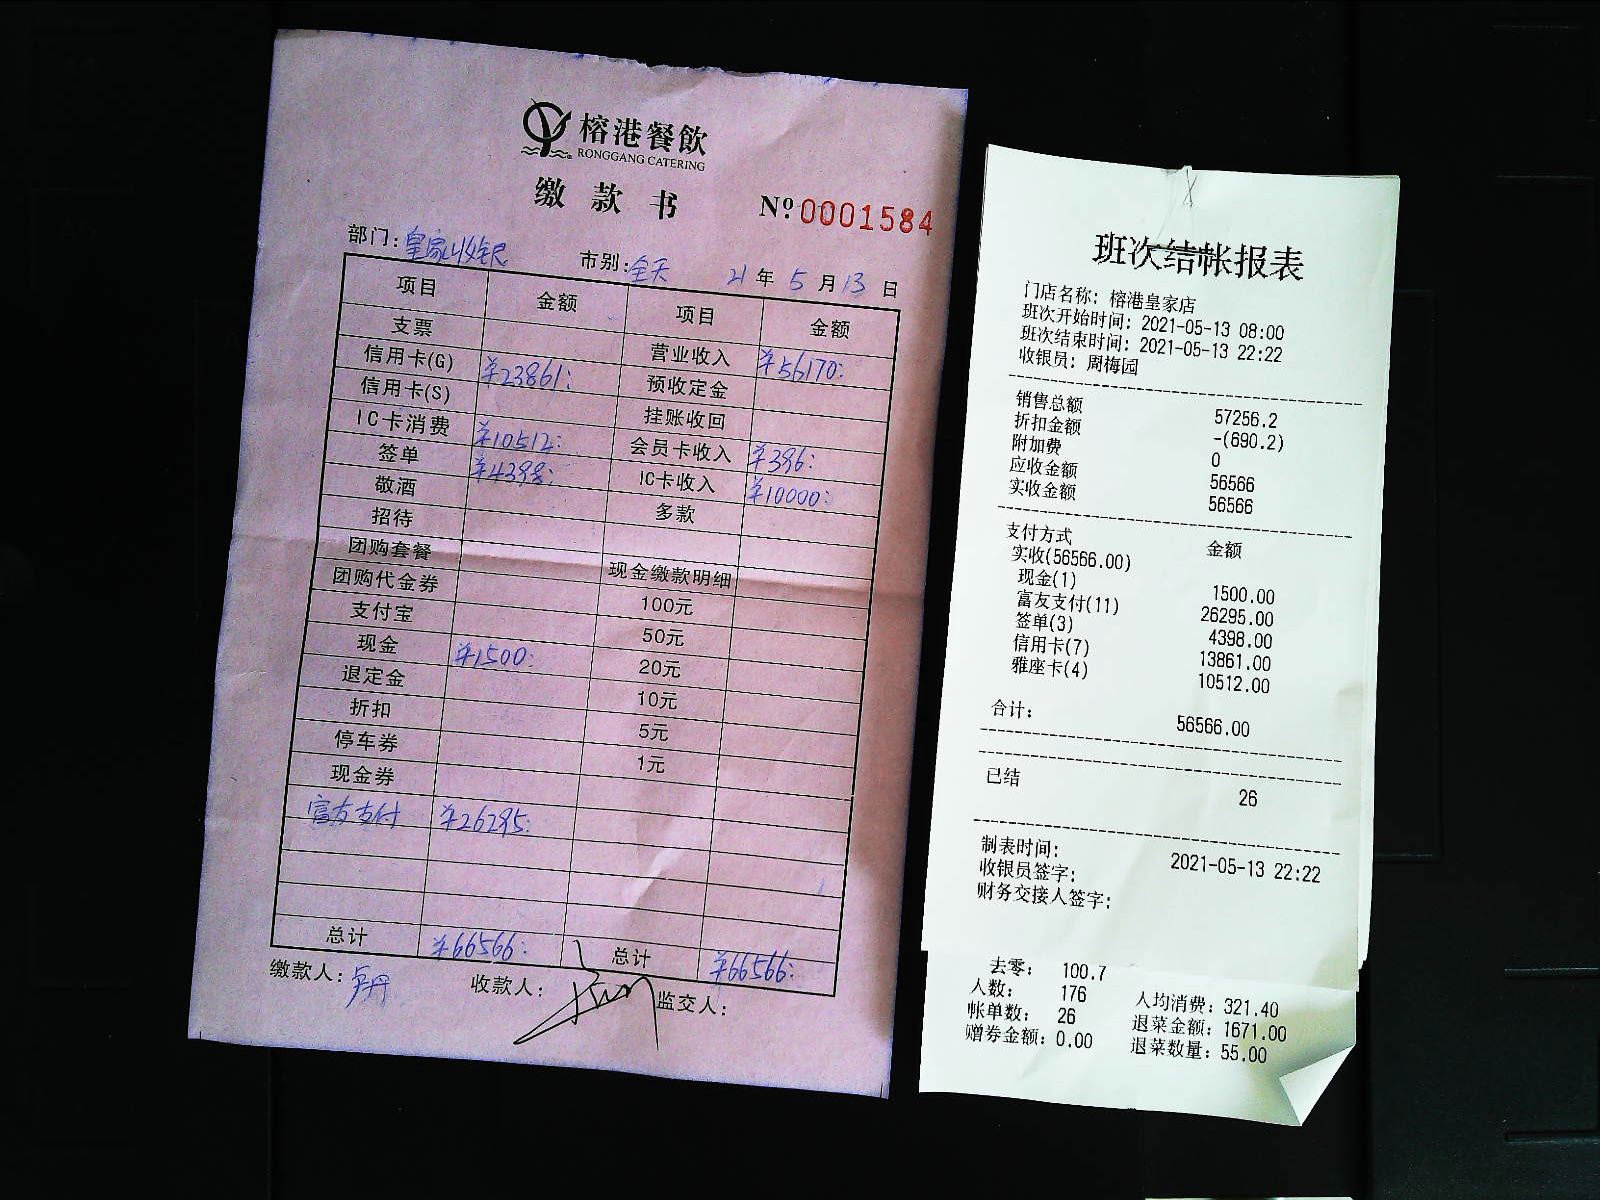 榕港餐飲
RONGGANG CATERING
缴款书 Nº 0001584
部门:皇家收银 市别:全天 21年5月13日
项目 金额 项目 金额
支票 营业收入 ¥56170:
信用卡(G) ¥23861: 预收定金
信用卡(S) 挂账收回
IC卡消费 ¥10512: 会员卡收入 ¥396:
签单 ¥4398: IC卡收入 ¥10000:
敬酒 多款
招待
团购套餐 现金缴款明细
团购代金券 100元
支付宝 50元
现金 ¥1500: 20元
退定金 10元
折扣 5元
停车券 1元
现金券
富友支付 ¥26295:
总计 ¥66566: 总计 ¥66566:
缴款人:卢丹 收款人: 监交人:
班次结帐报表
门店名称: 榕港皇家店
班次开始时间: 2021-05-13 08:00
班次结束时间: 2021-05-13 22:22
收银员: 周梅园
销售总额 57256.2
折扣金额 -(690.2)
附加费 0
应收金额 56566
实收金额 56566
支付方式 金额
实收(56566.00)
现金(1) 1500.00
富友支付(11) 26295.00
签单(3) 4398.00
信用卡(7) 13861.00
雅座卡(4) 10512.00
合计: 56566.00
已结 26
制表时间: 2021-05-13 22:22
收银员签字:
财务交接人签字:
去零: 100.7
人数: 176 人均消费: 321.40
帐单数: 26 退菜金额: 1671.00
赠券金额: 0.00 退菜数量: 55.00